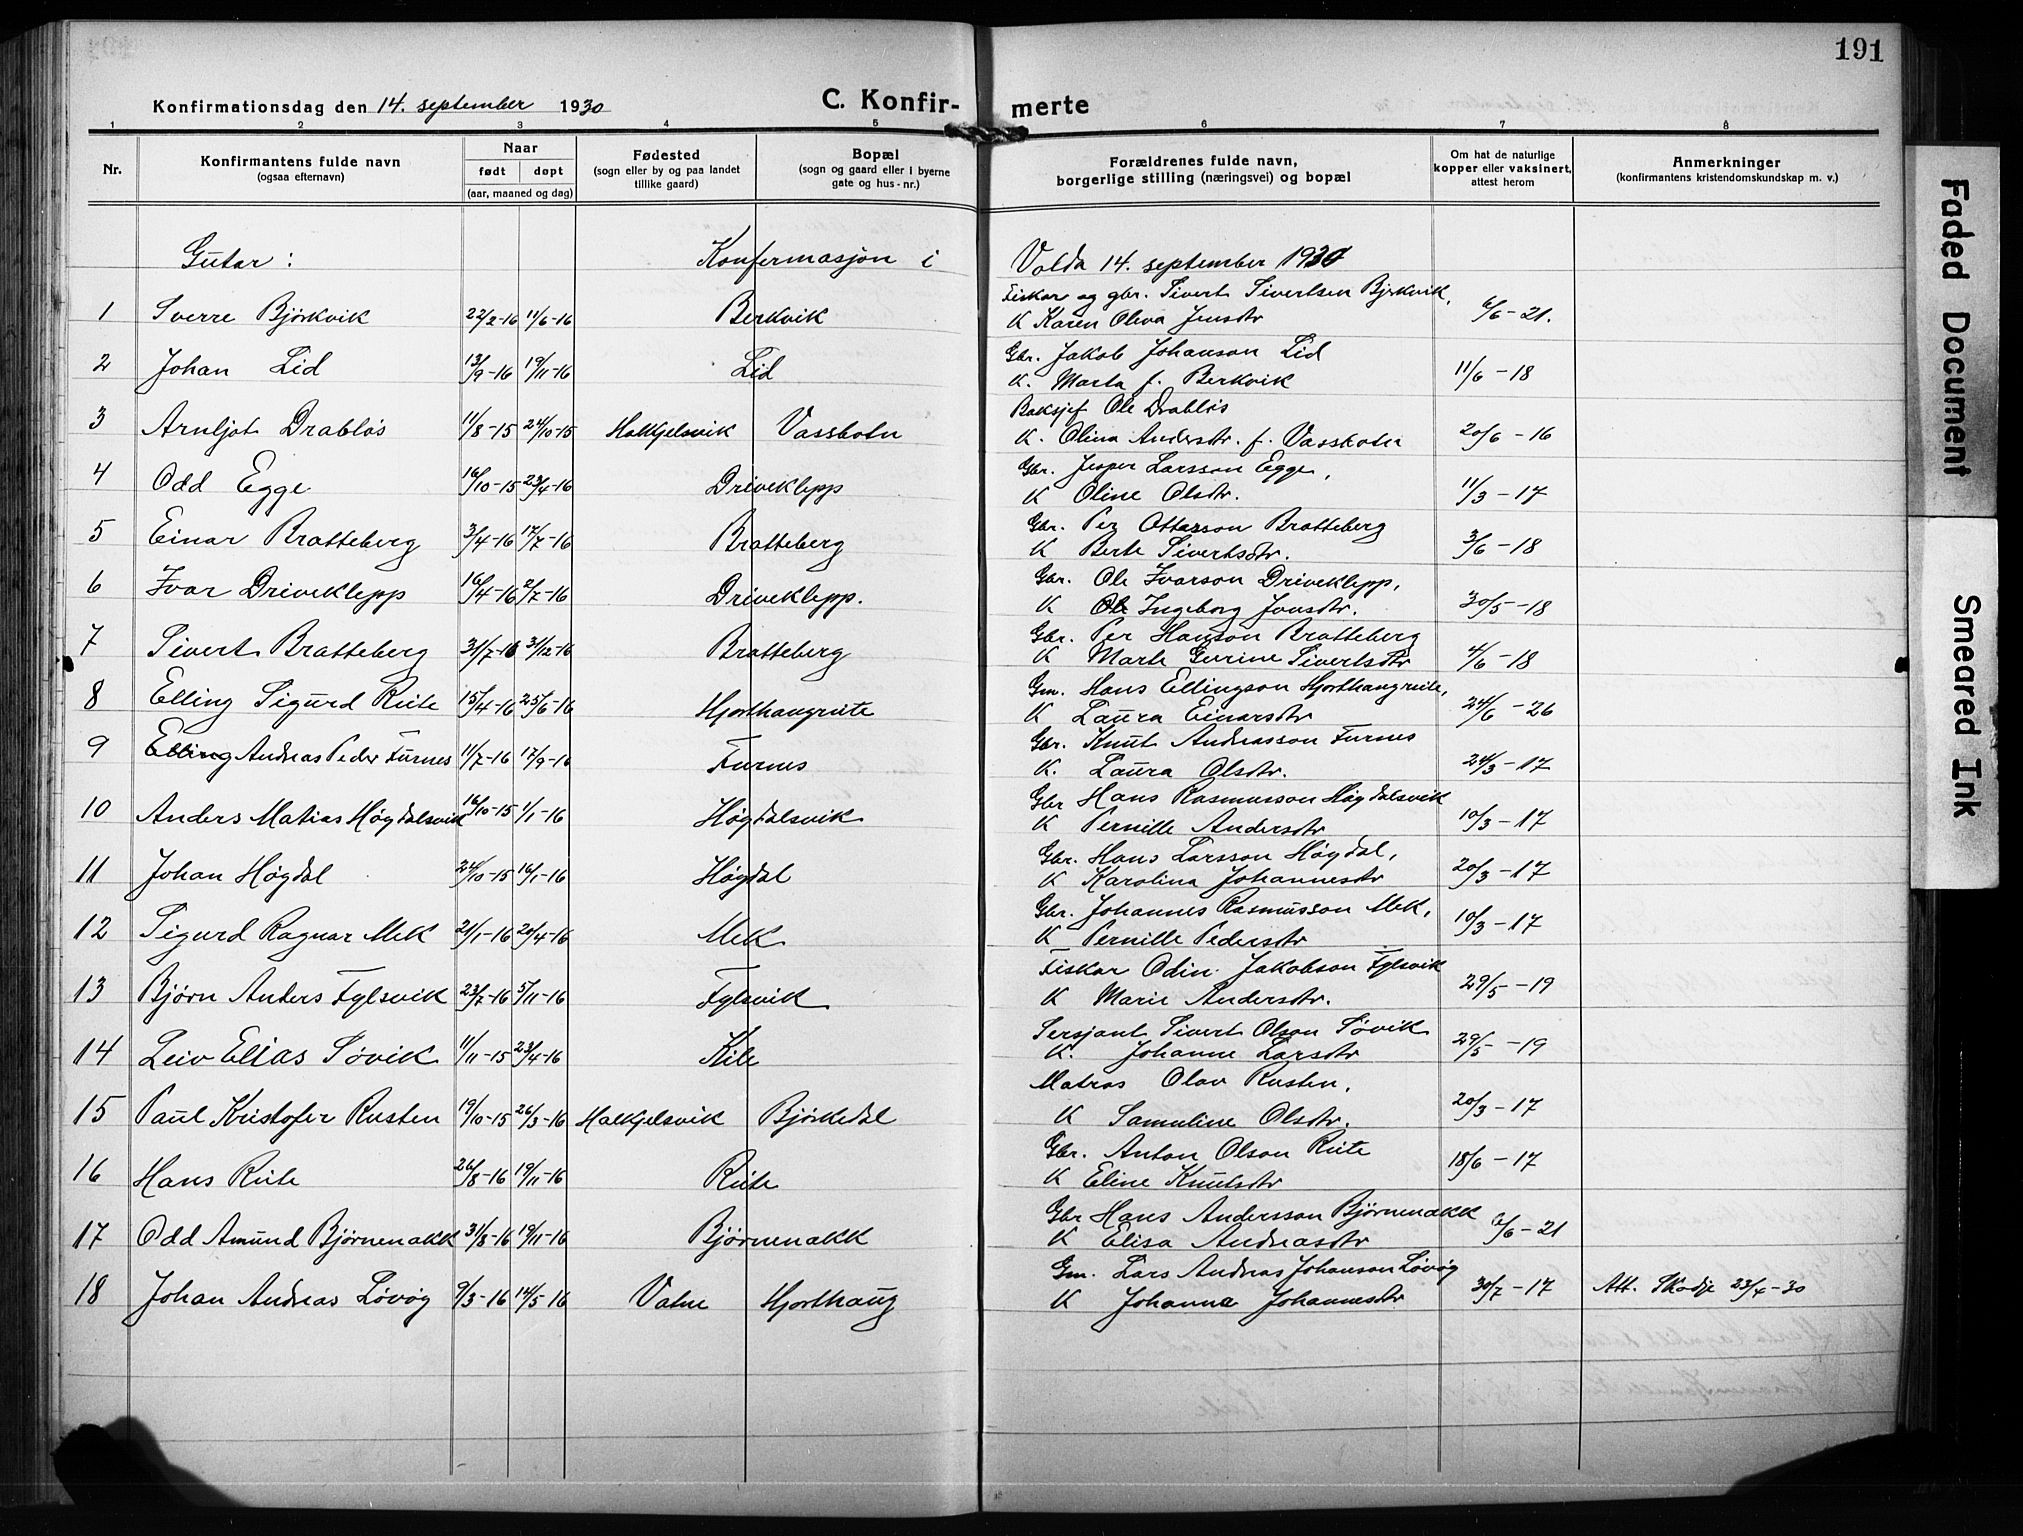 191
Konfirmationsdag den 14. september 1930 C. Konfir- merte
1 2 3 4 5 6 7 8
Nr. Konfirmantens fulde navn (ogsaa efternavn) Naar født døpt (aar, maaned og dag) Fødested (sogn eller by og paa landet tillike gaard) Bopæl (sogn og gaard eller i byerne gate og hus-nr.) Forældrenes fulde navn, borgerlige stilling (næringsvei) og bopæl Om hat de naturlige kopper eller vaksinert, attest herom Anmerkninger (konfirmantens kristendomskundskap m. v.)
Gutar: Konfirmasjon i Volda 14. september 1930
Fiskar og gbr. Sivert Sivertsen Bjørkvik,
1 Sverre Bjørkvik 22/2-16 11/6-16 Berkvik K Karen Oliva Jensdtr 6/6-21.
Gbr. Jakob Johanson Lid
2 Johan Lid 13/9-16 19/11-16 Lid K. Marta f. Berkvik 11/6-18
Baksjef Ole Drabløs
3 Arnljot Drabløs 11/8-15 24/10-15 Halkjelsvik Vassbotn K. Olina Andersdtr. f. Vassbotn 20/6-16
Gbr. Jesper Larsson Egge,
4 Odd Egge 16/10-15 23/4-16 Driveklepp K Oline Olsdtr. 11/3-17
Gbr. Per Ottarson Bratteberg
5 Einar Bratteberg 3/4-16 17/7-16 Bratteberg K Berte Sivertsdtr. 3/6-18
Gbr. Ole Ivarson Driveklepp,
6 Ivar Driveklepp 16/4-16 2/7-16 Driveklepp. K Ole Ingeborg Jonsdtr. 30/5-18
Gbr. Per Hanson Bratteberg
7 Sivert Bratteberg 31/7-16 31/12-16 Bratteberg K Marte Gurine Sivertsdtr 4/6-18
Gm. Hans Ellingson Hjorthaugruite,
8 Elling Sigurd Ruite 15/4-16 25/6-16 Hjorthaugruite K Laura Einarsdtr 24/6-26
Gbr. Knut Andreasson Furnes
9 Elling Andreas Peder Furnes 11/7-16 17/9-16 Furnes K. Laura Olsdtr. 24/3-17
Gbr Hans Rasmusson Høgdalsvik
10 Anders Matias Høgdalsvik 16/10-15 1/1-16 Høgdalsvik K Pernille Andersdtr 10/3-17
Gbr. Hans Larsson Høgdal,
11 Johan Høgdal 24/10-15 16/1-16 Høgdal K Karolina Johannesdtr 20/3-17
Gbr. Johannes Rasmusson Mek,
12 Sigurd Ragnar Mek 21/1-16 20/4-16 Mek K Pernille Pedersdtr 10/3-17
Fiskar Odin Jakobson Fylsvik
13 Bjørn Anders Fylsvik 23/7-16 5/11-16 Fylsvik K Marie Andersdtr. 29/5-19
Sersjant Sivert Olson Søvik
14 Leiv Elias Søvik 11/11-15 23/4-16 Kile K. Johanne Larsdtr 29/5-19
Matros Olav Rusten,
15 Paul Kristofer Rusten 19/10-15 26/3-16 Halkjelsvik Bjørkedal K Samuline Olsdtr. 20/3-17
Gbr. Anton Olson Ruite
16 Hans Ruite 26/8-16 19/11-16 Ruite K Eline Knutsdtr 18/6-17
Gbr Hans Andersson Bjørnenakk
17 Odd Amund Bjørnenakk 31/8-16 19/11-16 Bjørnenakk K Elisa Andreasdtr 6/6-21
Gm. Lars Andreas Johanson Løvøg
18 Johan Andreas Løvøg 9/3-16 14/5-16 Vatne Hjorthaug K Johanna Johannesdtr 30/7-17 Att. Skodje 23/4-30
Faded Document
Smeared Ink